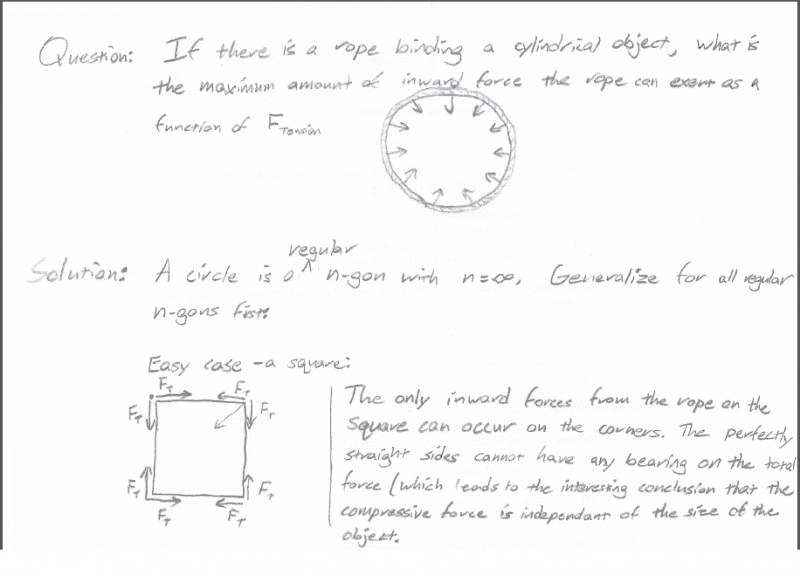 Question: If there is a rope binding a cylindrical object, what is
the maximum amount of inward force the rope can exert as a
function of F_Tension
Solution: A circle is a regular n-gon with n=∞. Generalize for all regular
n-gons first:
Easy case - a square:
F_T F_T
F_T F_T
F_T F_T
F_T F_T
The only inward forces from the rope on the
square can occur on the corners. The perfectly
straight sides cannot have any bearing on the total
force (which leads to the interesting conclusion that the
compressive force is independant of the size of the
object.